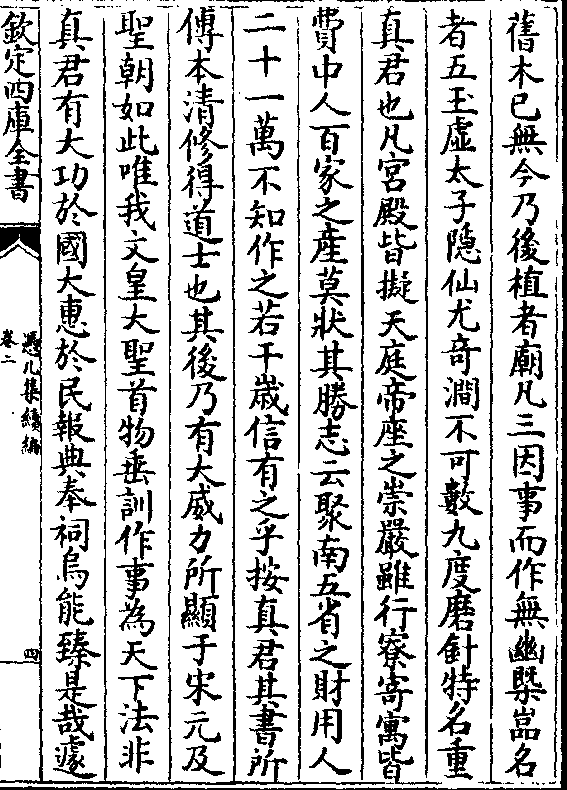 舊木已無今乃後植者廟凡三因事而作無幽槩嵓名
者五玉虛太子隱仙尤奇澗不可數九度磨針特名重
真君也凡宮殿皆擬天庭帝座之崇嚴雖行寮寄寓皆
費中人百家之產莫狀其勝志云聚南五省之財用人
二十一萬不知作之若干歲信有之乎按真君其書所
傳本清修得道士也其後乃有大威力所顯于宋元及
聖朝如此唯我文皇大聖首物垂訓作事為天下法非
真君有大功於國大惠於民報典奉祠烏能臻是哉遽
欽定四庫全書
憑几集續編
卷二
四